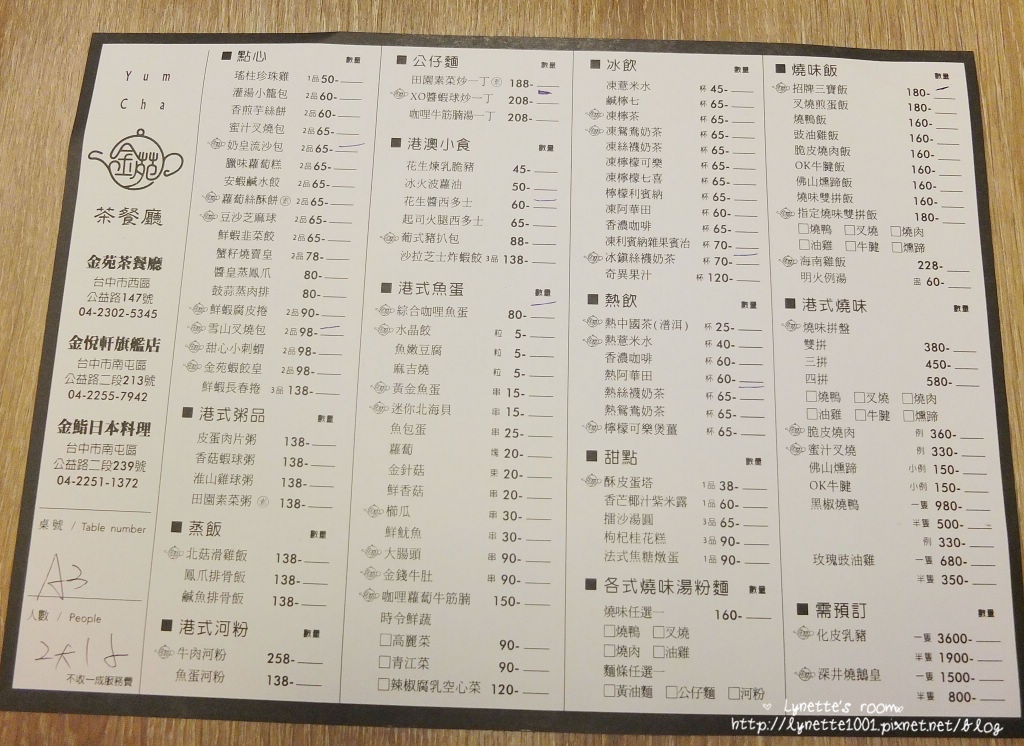 Yum
Cha
金苑
茶餐廳
金苑茶餐廳
台中市西區
公益路147號
04-2302-5345
金悅軒旗艦店
台中市南屯區
公益路二段213號
04-2255-7942
金鮨日本料理
台中市南屯區
公益路二段239號
04-2251-1372
桌號 / Table number
A3
人數 / People
2大1小
不收一成服務費
■ 點心 數量
瑤柱珍珠雞 1品 50-
灌湯小籠包 2品 60-
香煎芋絲餅 2品 60-
蜜汁叉燒包 2品 65-
奶皇流沙包 2品 65-
臘味蘿蔔糕 2品 65-
安蝦鹹水餃 2品 65-
蘿蔔絲酥餅 素 2品 65-
豆沙芝麻球 2品 65-
鮮蝦韭菜餃 2品 65-
蟹籽燒賣皇 2品 78-
醬皇蒸鳳爪 80-
豉蒜蒸肉排 80-
鮮蝦腐皮捲 2品 90-
雪山叉燒包 2品 98-
甜心小刺蝟 2品 98-
金苑蝦餃皇 2品 98-
鮮蝦長春捲 3品 138-
■ 港式粥品 數量
皮蛋肉片粥 138-
香菇蝦球粥 138-
淮山雞球粥 138-
田園素菜粥 素 138-
■ 蒸飯 數量
北菇滑雞飯 138-
鳳爪排骨飯 138-
鹹魚排骨飯 138-
■ 港式河粉 數量
牛肉河粉 258-
魚蛋河粉 138-
■ 公仔麵 數量
田園素菜炒一丁 素 188-
XO醬蝦球炒一丁 208-
咖哩牛筋腩湯一丁 208-
■ 港澳小食 數量
花生煉乳脆豬 45-
冰火波蘿油 50-
花生醬西多士 60-
起司火腿西多士 65-
葡式豬扒包 88-
沙拉芝士炸蝦餃 3品 138-
■ 港式魚蛋 數量
綜合咖哩魚蛋 80-
水晶餃 粒 5-
魚嫩豆腐 粒 5-
麻吉燒 粒 5-
黃金魚蛋 串 15-
迷你北海貝 串 15-
魚包蛋 串 25-
蘿蔔 塊 20-
金針菇 束 20-
鮮香菇 串 20-
櫛瓜 串 30-
鮮魷魚 串 30-
大腸頭 串 90-
金錢牛肚 串 90-
咖哩蘿蔔牛筋腩 150-
時令鮮蔬
□高麗菜 90-
□青江菜 90-
□辣椒腐乳空心菜 120-
■ 冰飲 數量
凍薏米水 杯 45-
鹹檸七 杯 65-
凍檸茶 杯 65-
凍鴛鴦奶茶 杯 65-
凍絲襪奶茶 杯 65-
凍檸檬可樂 杯 65-
凍檸檬七喜 杯 65-
檸檬利賓納 杯 65-
凍阿華田 杯 60-
香濃咖啡 杯 65-
凍利賓納雜果賓治 杯 70-
冰鎮絲襪奶茶 杯 70-
奇異果汁 杯 120-
■ 熱飲 數量
熱中國茶(潽洱) 杯 25-
熱薏米水 杯 40-
香濃咖啡 杯 60-
熱阿華田 杯 60-
熱絲襪奶茶 杯 65-
熱鴛鴦奶茶 杯 65-
檸檬可樂煲薑 杯 65-
■ 甜點 數量
酥皮蛋塔 1品 38-
香芒椰汁紫米露 1品 60-
擂沙湯圓 3品 65-
枸杞桂花糕 3品 90-
法式焦糖燉蛋 1品 90-
■ 各式燒味湯粉麵 數量
燒味任選一 160-
□燒鴨 □叉燒
□燒肉 □油雞
麵條任選一
□黃油麵 □公仔麵 □河粉
■ 燒味飯 數量
招牌三寶飯 180-
叉燒煎蛋飯 180-
燒鴨飯 160-
豉油雞飯 160-
脆皮燒肉飯 160-
OK牛腱飯 160-
佛山燻蹄飯 160-
燒味雙拼飯 160-
指定燒味雙拼飯 180-
□燒鴨 □叉燒 □燒肉
□油雞 □牛腱 □燻蹄
海南雞飯 228-
明火例湯 盅 60-
■ 港式燒味 數量
燒味拼盤
雙拼 380-
三拼 450-
四拼 580-
□燒鴨 □叉燒 □燒肉
□油雞 □牛腱 □燻蹄
脆皮燒肉 例 360-
蜜汁叉燒 例 330-
佛山燻蹄 小例 150-
OK牛腱 小例 150-
黑椒燒鴨 一隻 980-
半隻 500-
例 330-
玫瑰豉油雞 一隻 680-
半隻 350-
■ 需預訂 數量
化皮乳豬 一隻 3600-
半隻 1900-
深井燒鵝皇 一隻 1500-
半隻 800-
Lynette's room
http://lynette1001.pixnet.net/blog